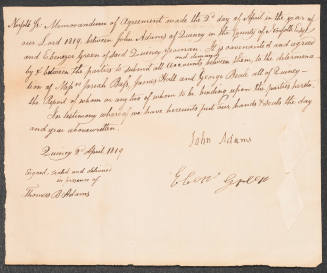 Norfolk Ss. Memorandum of Agreement made the 3d day of April in the year of
our Lord 1819, between John Adams of Quincy in the County of Norfolk Esqr
and Ebenezer Green of said Quincy Yeoman. It is covenanted and agreed
by & between the parties to submit all accounts and demands between them, to the determina
tion of Messrs Josiah Bass, James Hall and George all of Quincy
the report of whom or any two of whom to be binding upon the parties hereto.
In testimony whereof we have hereunto put our hands & seals the day
and year above written.
Quincy April 1819
John Adams
Signed, sealed and delivered
in presence of
Ebenr Green
Thomas B. Adams